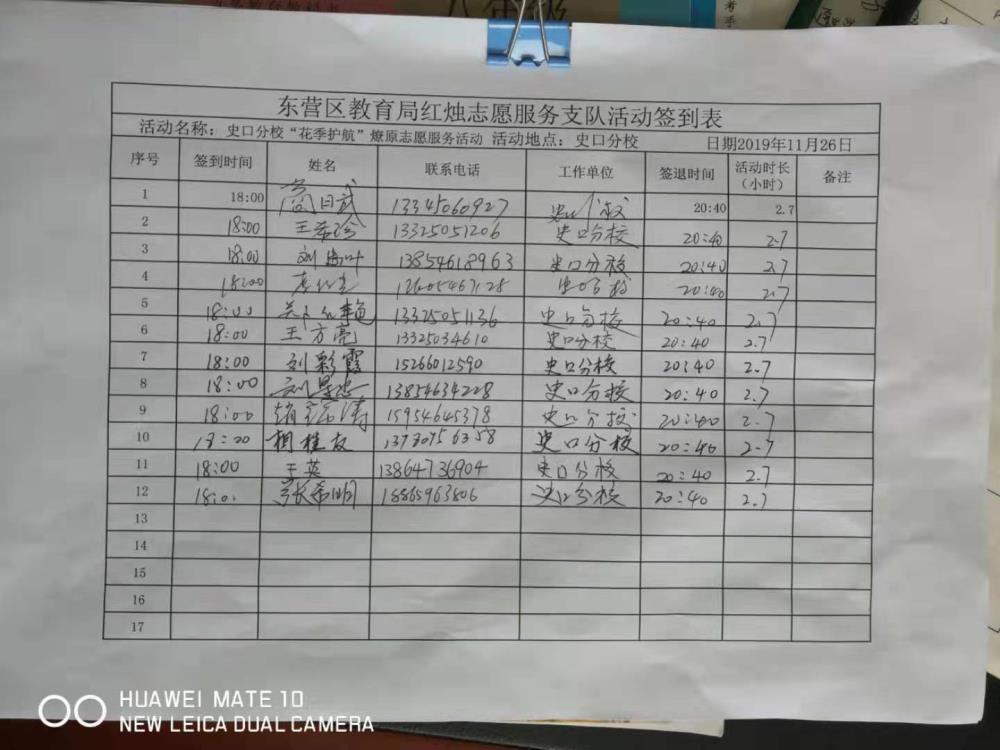 八年级
东营区教育局红烛志愿服务支队活动签到表
活动名称：史口分校“花季护航”燎原志愿服务活动 活动地点：史口分校 日期2019年11月26日
序号 签到时间 姓名 联系电话 工作单位 签退时间 活动时长（小时） 备注
1 18:00 尚日武 13345060927 史口分校 20:40 2.7
2 18:00 王希珍 13325051206 史口分校 20:40 2.7
3 18:00 刘 13854618963 史口分校 20:40 2.7
4 18:00 史口分校 20:40 2.7
5 18:00 13325051136 史口分校 20:40 2.7
6 18:00 王方亮 13325034610 史口分校 20:40 2.7
7 18:00 刘彩霞 15266012590 史口分校 20:40 2.7
8 18:00 刘景忠 13854634228 史口分校 20:40 2.7
9 18:00 15954645378 史口分校 20:40 2.7
10 18:00 相桂友 史口分校 20:40 2.7
11 18:00 王英 13864736904 史口分校 20:40 2.7
12 18:0 张希明 18865963806 史口分校 20:40 2.7
13
14
15
16
17
HUAWEI MATE 10
NEW LEICA DUAL CAMERA